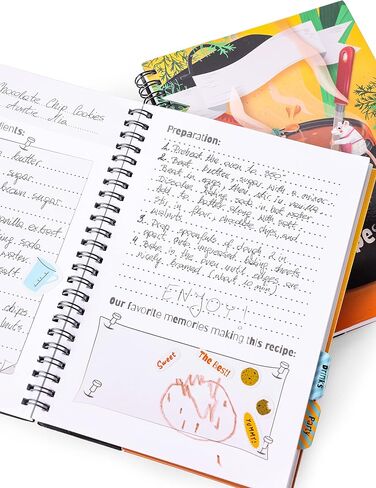 Chocolate Chip Cookies
Auntie Mia
dients:
butter
sugar
brown sugar
vanilla extract
ing soda
water
salt
chips
nuts
Preparation:
1. Preheat the oven to 350
2. Beat butter, sugar with a mixer.
Beat in eggs, then stir in vanilla.
Dissolve baking soda in hot water.
Add to batter along with salt.
Stir in flour, chocolate chips, and
walnuts.
3. Drop spoonfuls of dough 2 in
apart onto ungreased baking sheets.
4. Bake in the oven until edges are
nicely browned (about 10 min)
ENJOY!
Our favorite memories making this recipe:
Sweet
The Best!
YUMMY!
Drinks
Party
pes